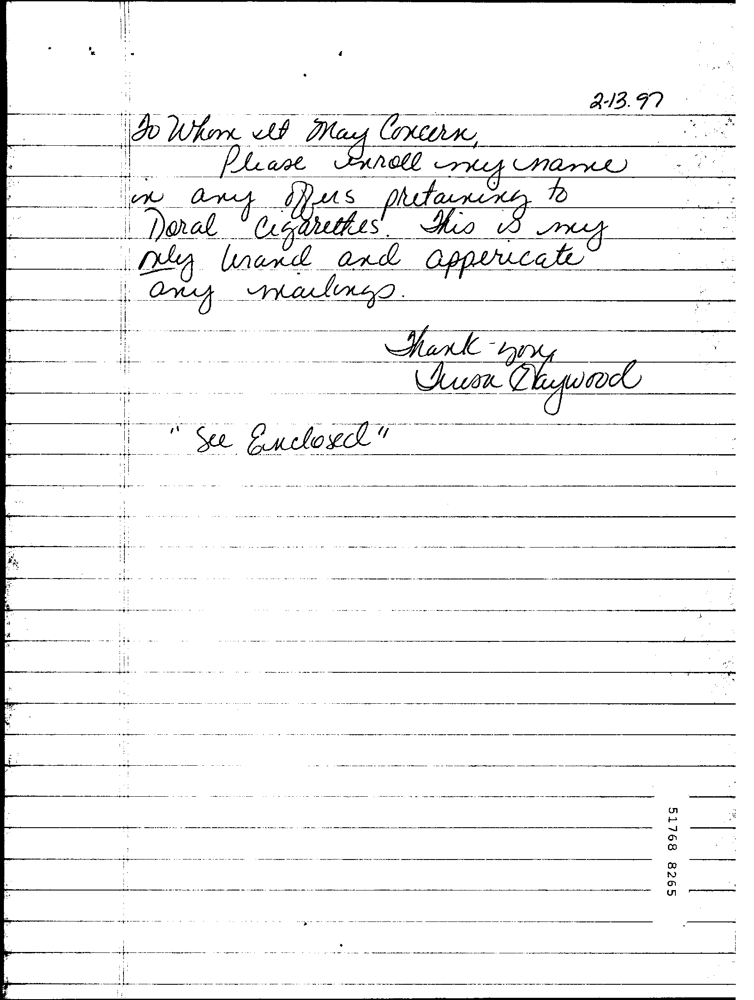 2-13.97
To Whom It May Concern,
Please enroll my name
in any offers pretaining to
Doral Cigarettes. This is my
only brand and appericate
any mailings.
Thank-you,
Teresa Haywood
"See Enclosed"
51768 8265